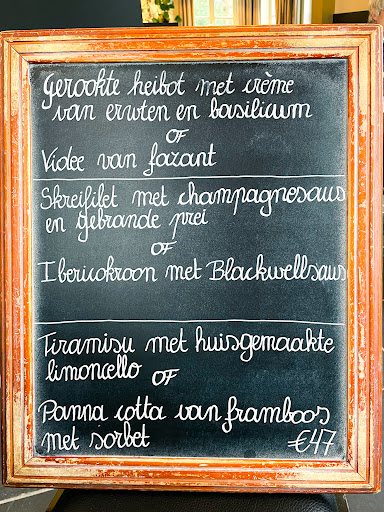 Gerookte heibot met crème
van erwten en basilicum
OF
Videe van fazant
Skreifilet met champagnesaus
en gebrande prei
OF
Ibericokroon met Blackwellsaus
Tiramisu met huisgemaakte
limoncello OF
Panna cotta van framboos
met sorbet €47